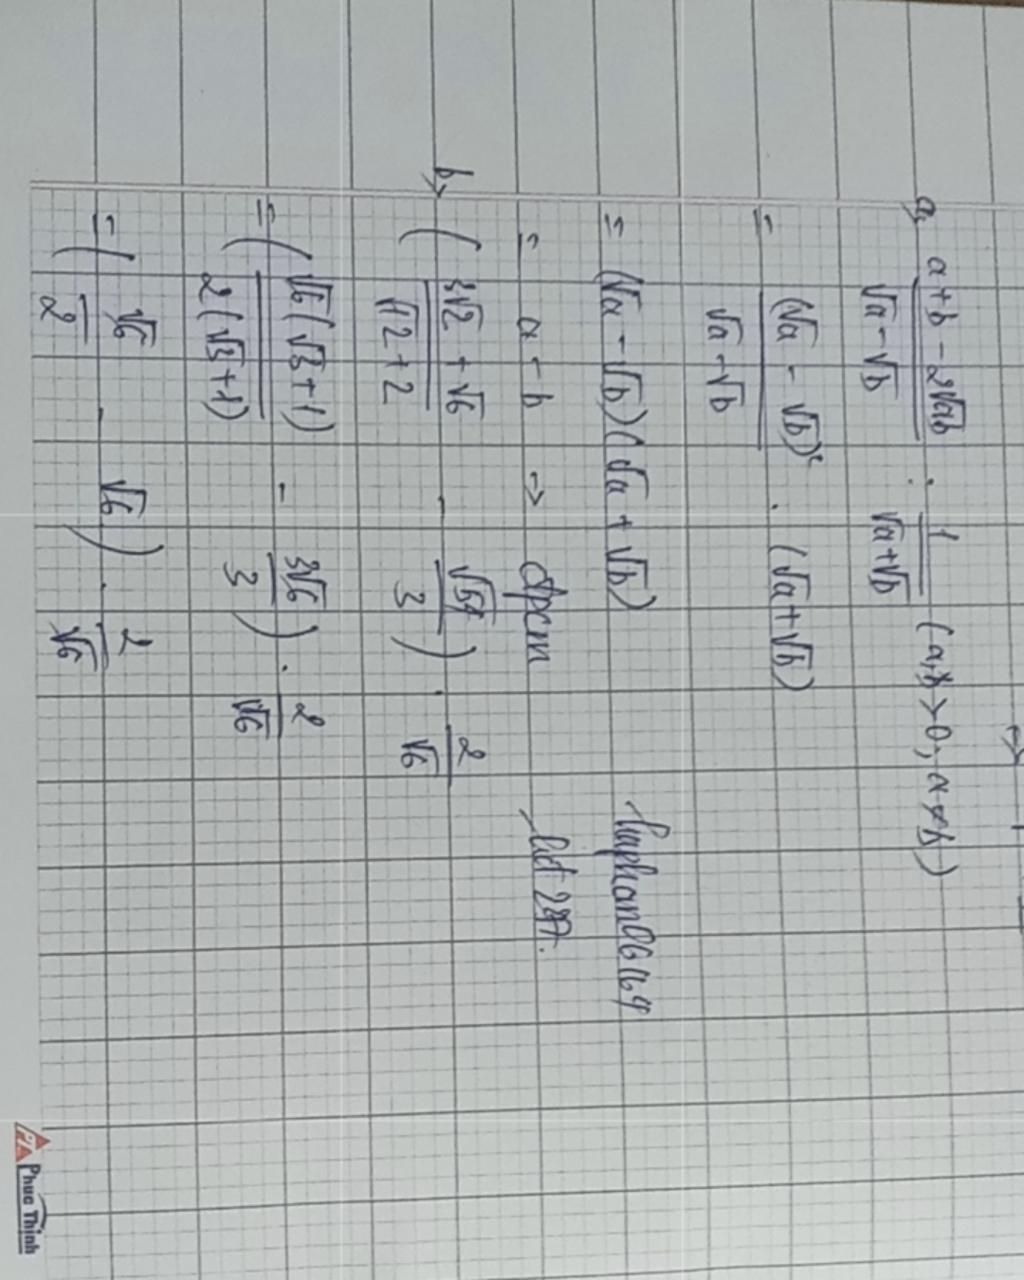 a, (a+b-2√ab)/(√a-√b) : 1/(√a+√b) (a,b > 0; a≠b)
= (√a - √b)²/(√a-√b) . (√a+√b)
= (√a - √b)(√a + √b)
= a - b → đpcm
b, ((3√2 + √6)/(√12+2) - √54/3) . 2/√6
= (√6(√3+1)/2(√3+1) - 3√6/3) . 2/√6
= (√6/2 - √6) . 2/√6
Phuc Thinh